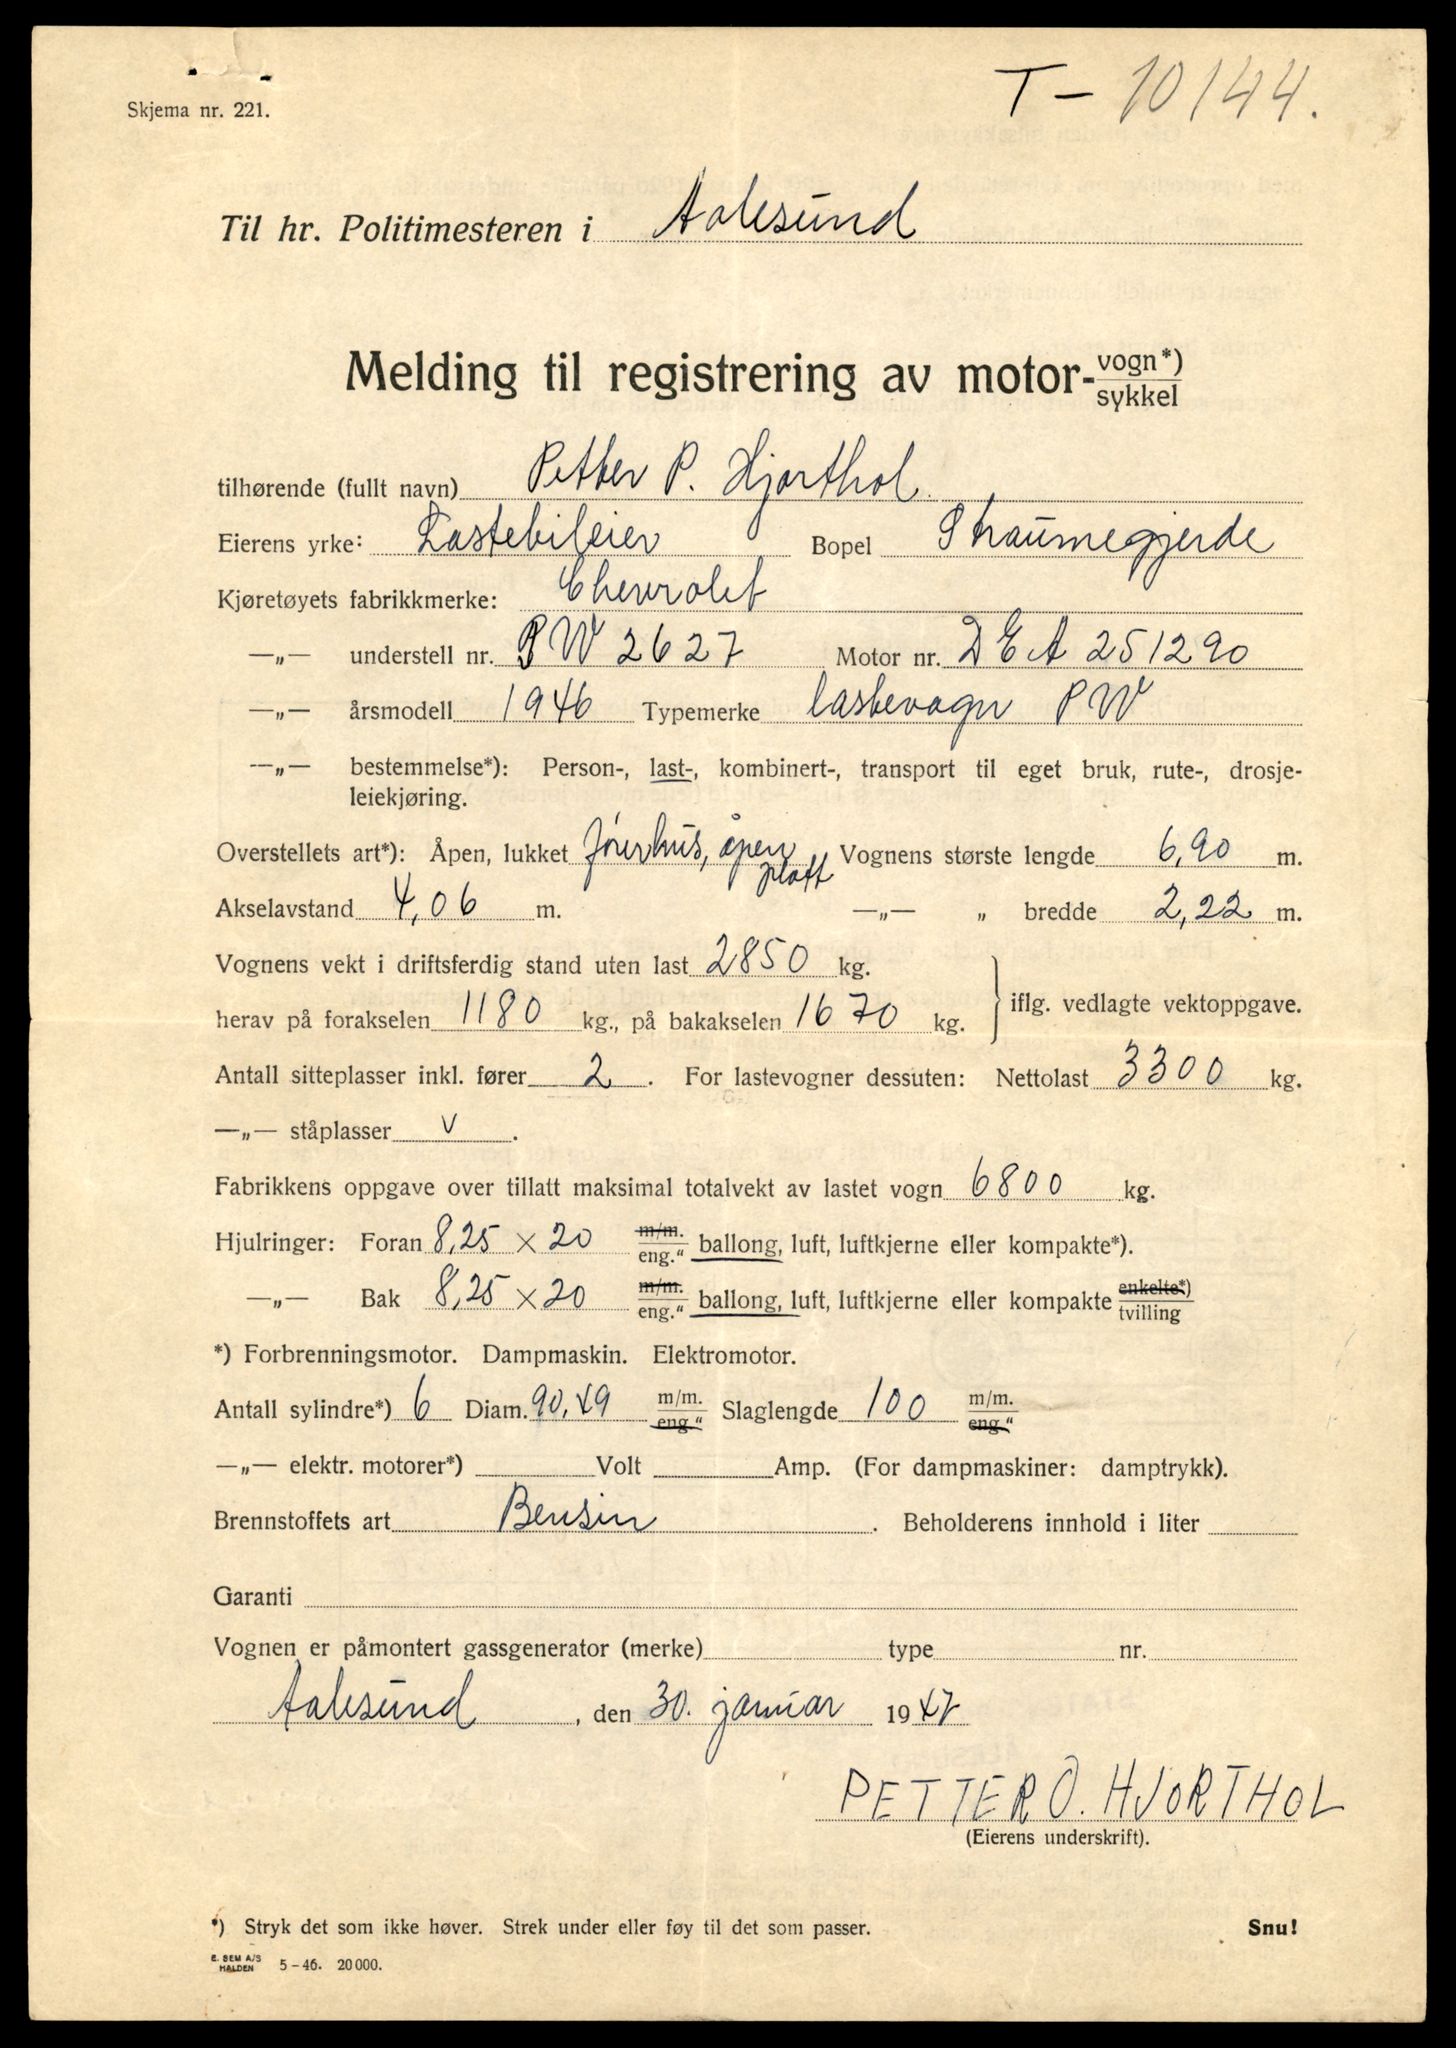 Skjema nr. 221.
T - 10144.
Til hr. Politimesteren i Aalesund
Melding til registrering av motor- vogn*) / sykkel
tilhørende (fullt navn) Petter P. Hjorthol
Eierens yrke: Lastebileier Bopel Straumegjerde
Kjøretøyets fabrikkmerke: Chevrolet
—„— understell nr. PW 2627 Motor nr. DEA 251290
—„— årsmodell 1946 Typemerke lastevogn PW
—„— bestemmelse*): Person-, last-, kombinert-, transport til eget bruk, rute-, drosje-
leiekjøring.
Overstellets art*): Åpen, lukket førerhus, åpen Vognens største lengde 6,90 m.
platt
Akselavstand 4,06 m. —„— „ bredde 2,22 m.
Vognens vekt i driftsferdig stand uten last 2850 kg.
herav på forakselen 1180 kg., på bakakselen 1670 kg. iflg. vedlagte vektoppgave.
Antall sitteplasser inkl. fører 2. For lastevogner dessuten: Nettolast 3300 kg.
—„— ståplasser v.
Fabrikkens oppgave over tillatt maksimal totalvekt av lastet vogn 6800 kg.
Hjulringer: Foran 8,25 × 20 m/m. / eng.“ ballong, luft, luftkjerne eller kompakte*).
—„— Bak 8,25 × 20 m/m. / eng.“ ballong, luft, luftkjerne eller kompakte enkelte*) / tvilling
*) Forbrenningsmotor. Dampmaskin. Elektromotor.
Antall sylindre*) 6 Diam. 90,49 m/m. / eng.“ Slaglengde 100 m/m. / eng.“
—„— elektr. motorer*) Volt Amp. (For dampmaskiner: damptrykk).
Brennstoffets art Bensin. Beholderens innhold i liter
Garanti
Vognen er påmontert gassgenerator (merke) type nr.
Aalesund, den 30. januar 1947
PETTER O. HJORTHOL
(Eierens underskrift).
*) Stryk det som ikke høver. Strek under eller føy til det som passer. Snu!
E. SEM A/S
HALDEN 5-46. 20 000.